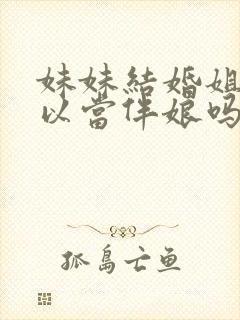 妹妹結婚姐
以當伴娘吗
孤島亡鱼